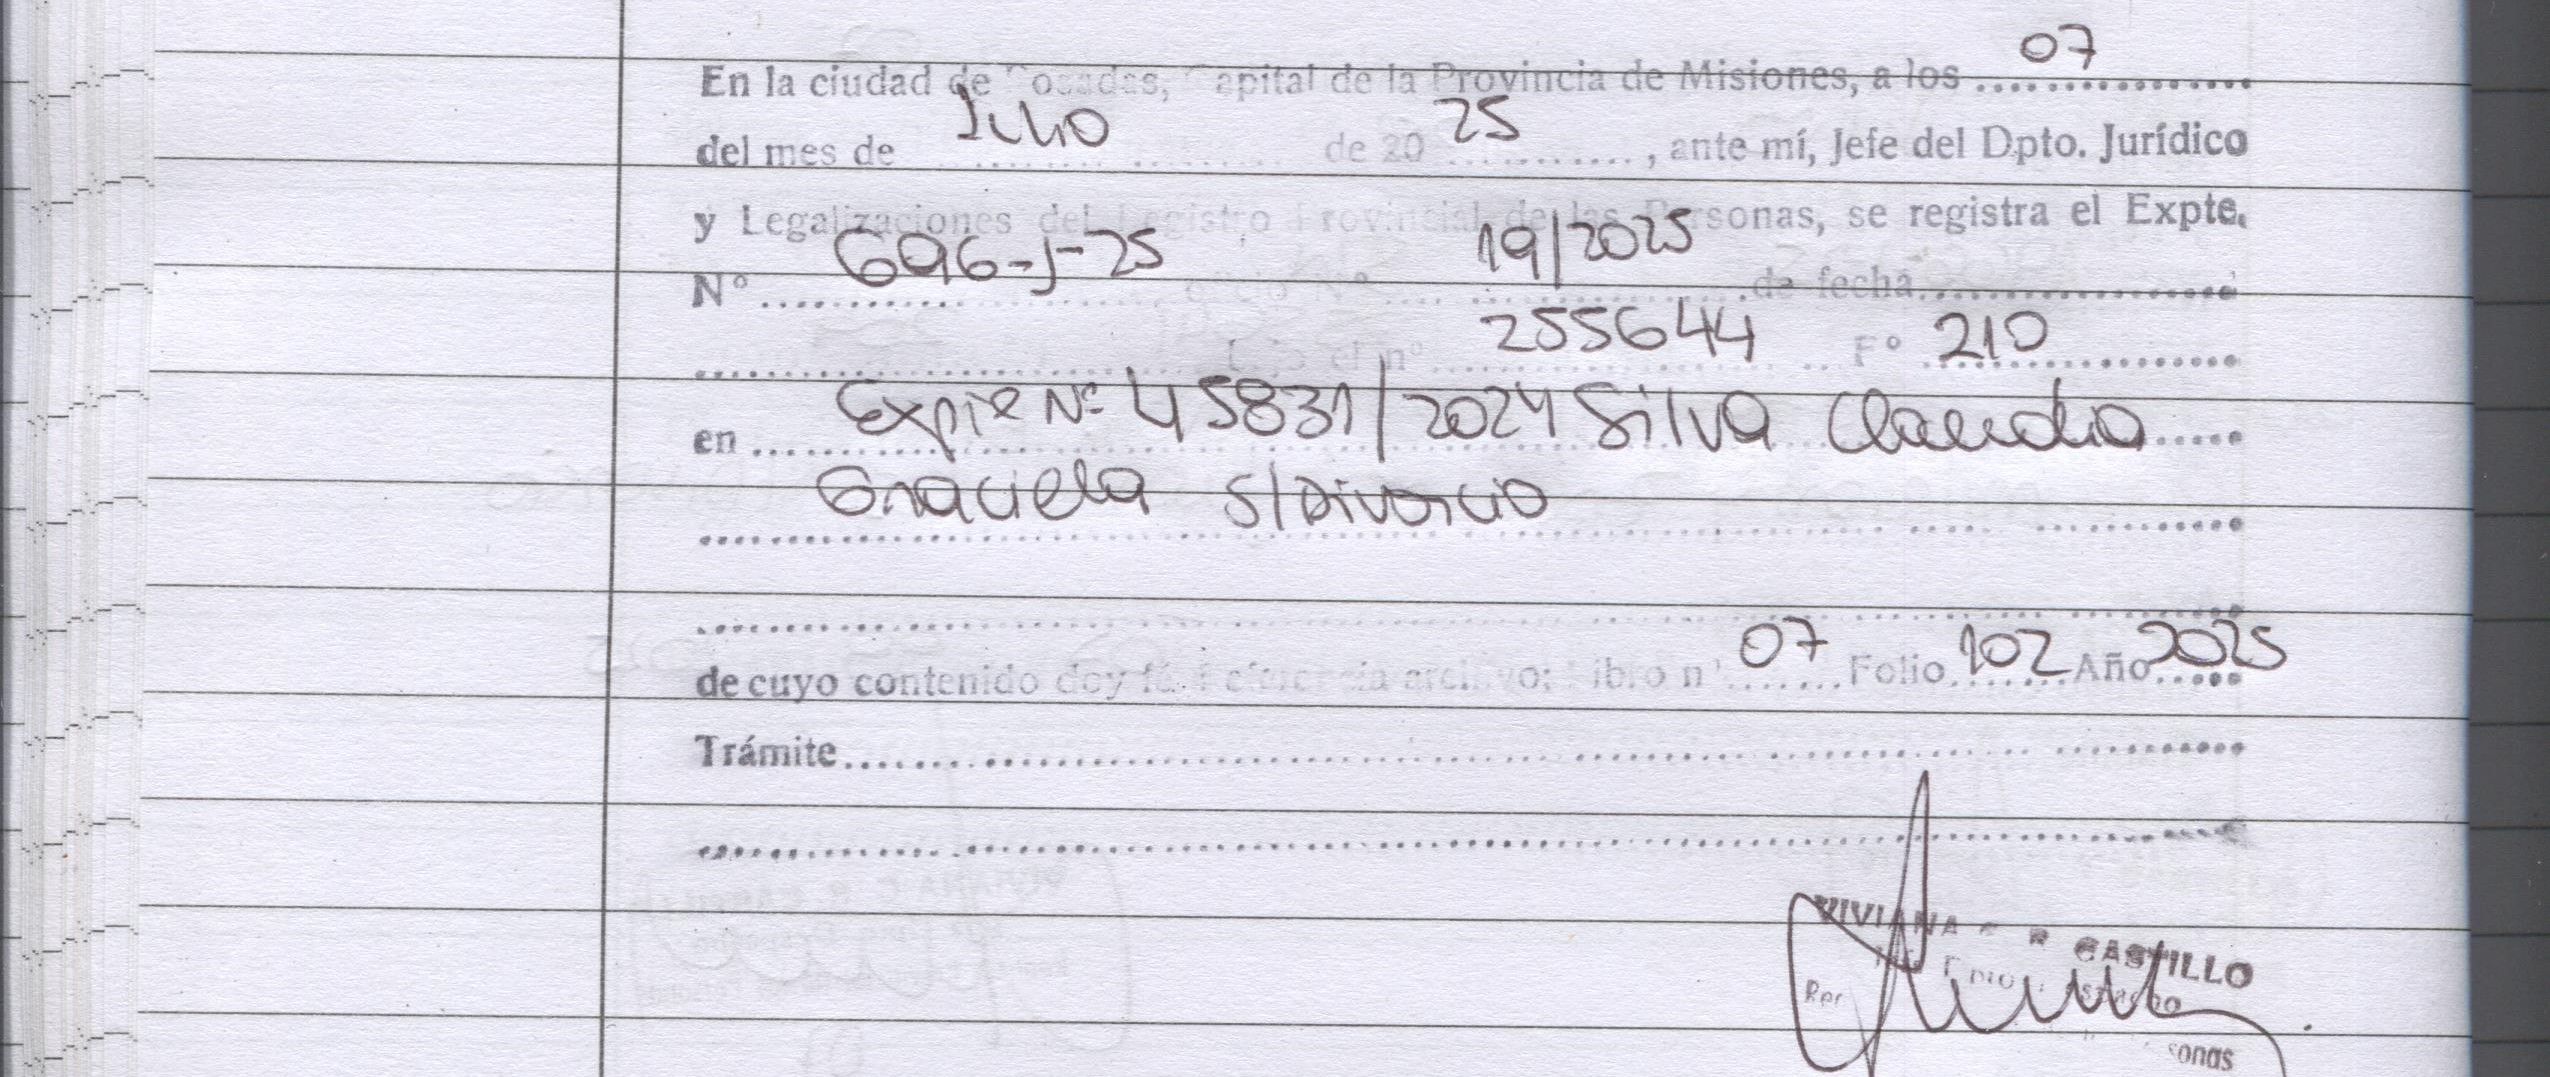 En la ciudad de Posadas, Capital de la Provincia de Misiones, a los 07
del mes de Julio de 20 25, ante mí, Jefe del Dpto. Jurídico
y Legalizaciones del Registro Provincial de las Personas, se registra el Expte.
N° 696-J-25 oficio N° 19/2025 de fecha
bajo el n° 255644 F° 210
en Expte Nº 45831/2024 Silva Claudia
Graciela s/Divorcio
de cuyo contenido doy fé. Referencia archivo: Libro n° 07 Folio 102 Año 2025
Trámite
VIVIANA C. R. CASTILLO